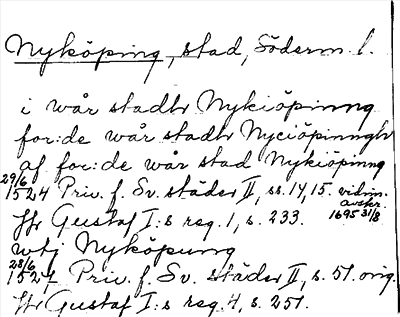 Nyköping, stad, Söderm. l.
i wår stadh Nykiöpinng
for:de wår stadh Nyciöpinngh
af for:de wår stad Nykiöpinng
29/6 1524 Priv. f. Sv. städer II, ss. 14, 15. vidim. avskr. 1695 31/8
Jfr Gustaf I:s reg. 1, s. 233.
wtj Nyköpung
28/6 1527 Priv. f. Sv. städer II, s. 51. orig.
Jfr Gustaf I:s reg. 4, s. 251.